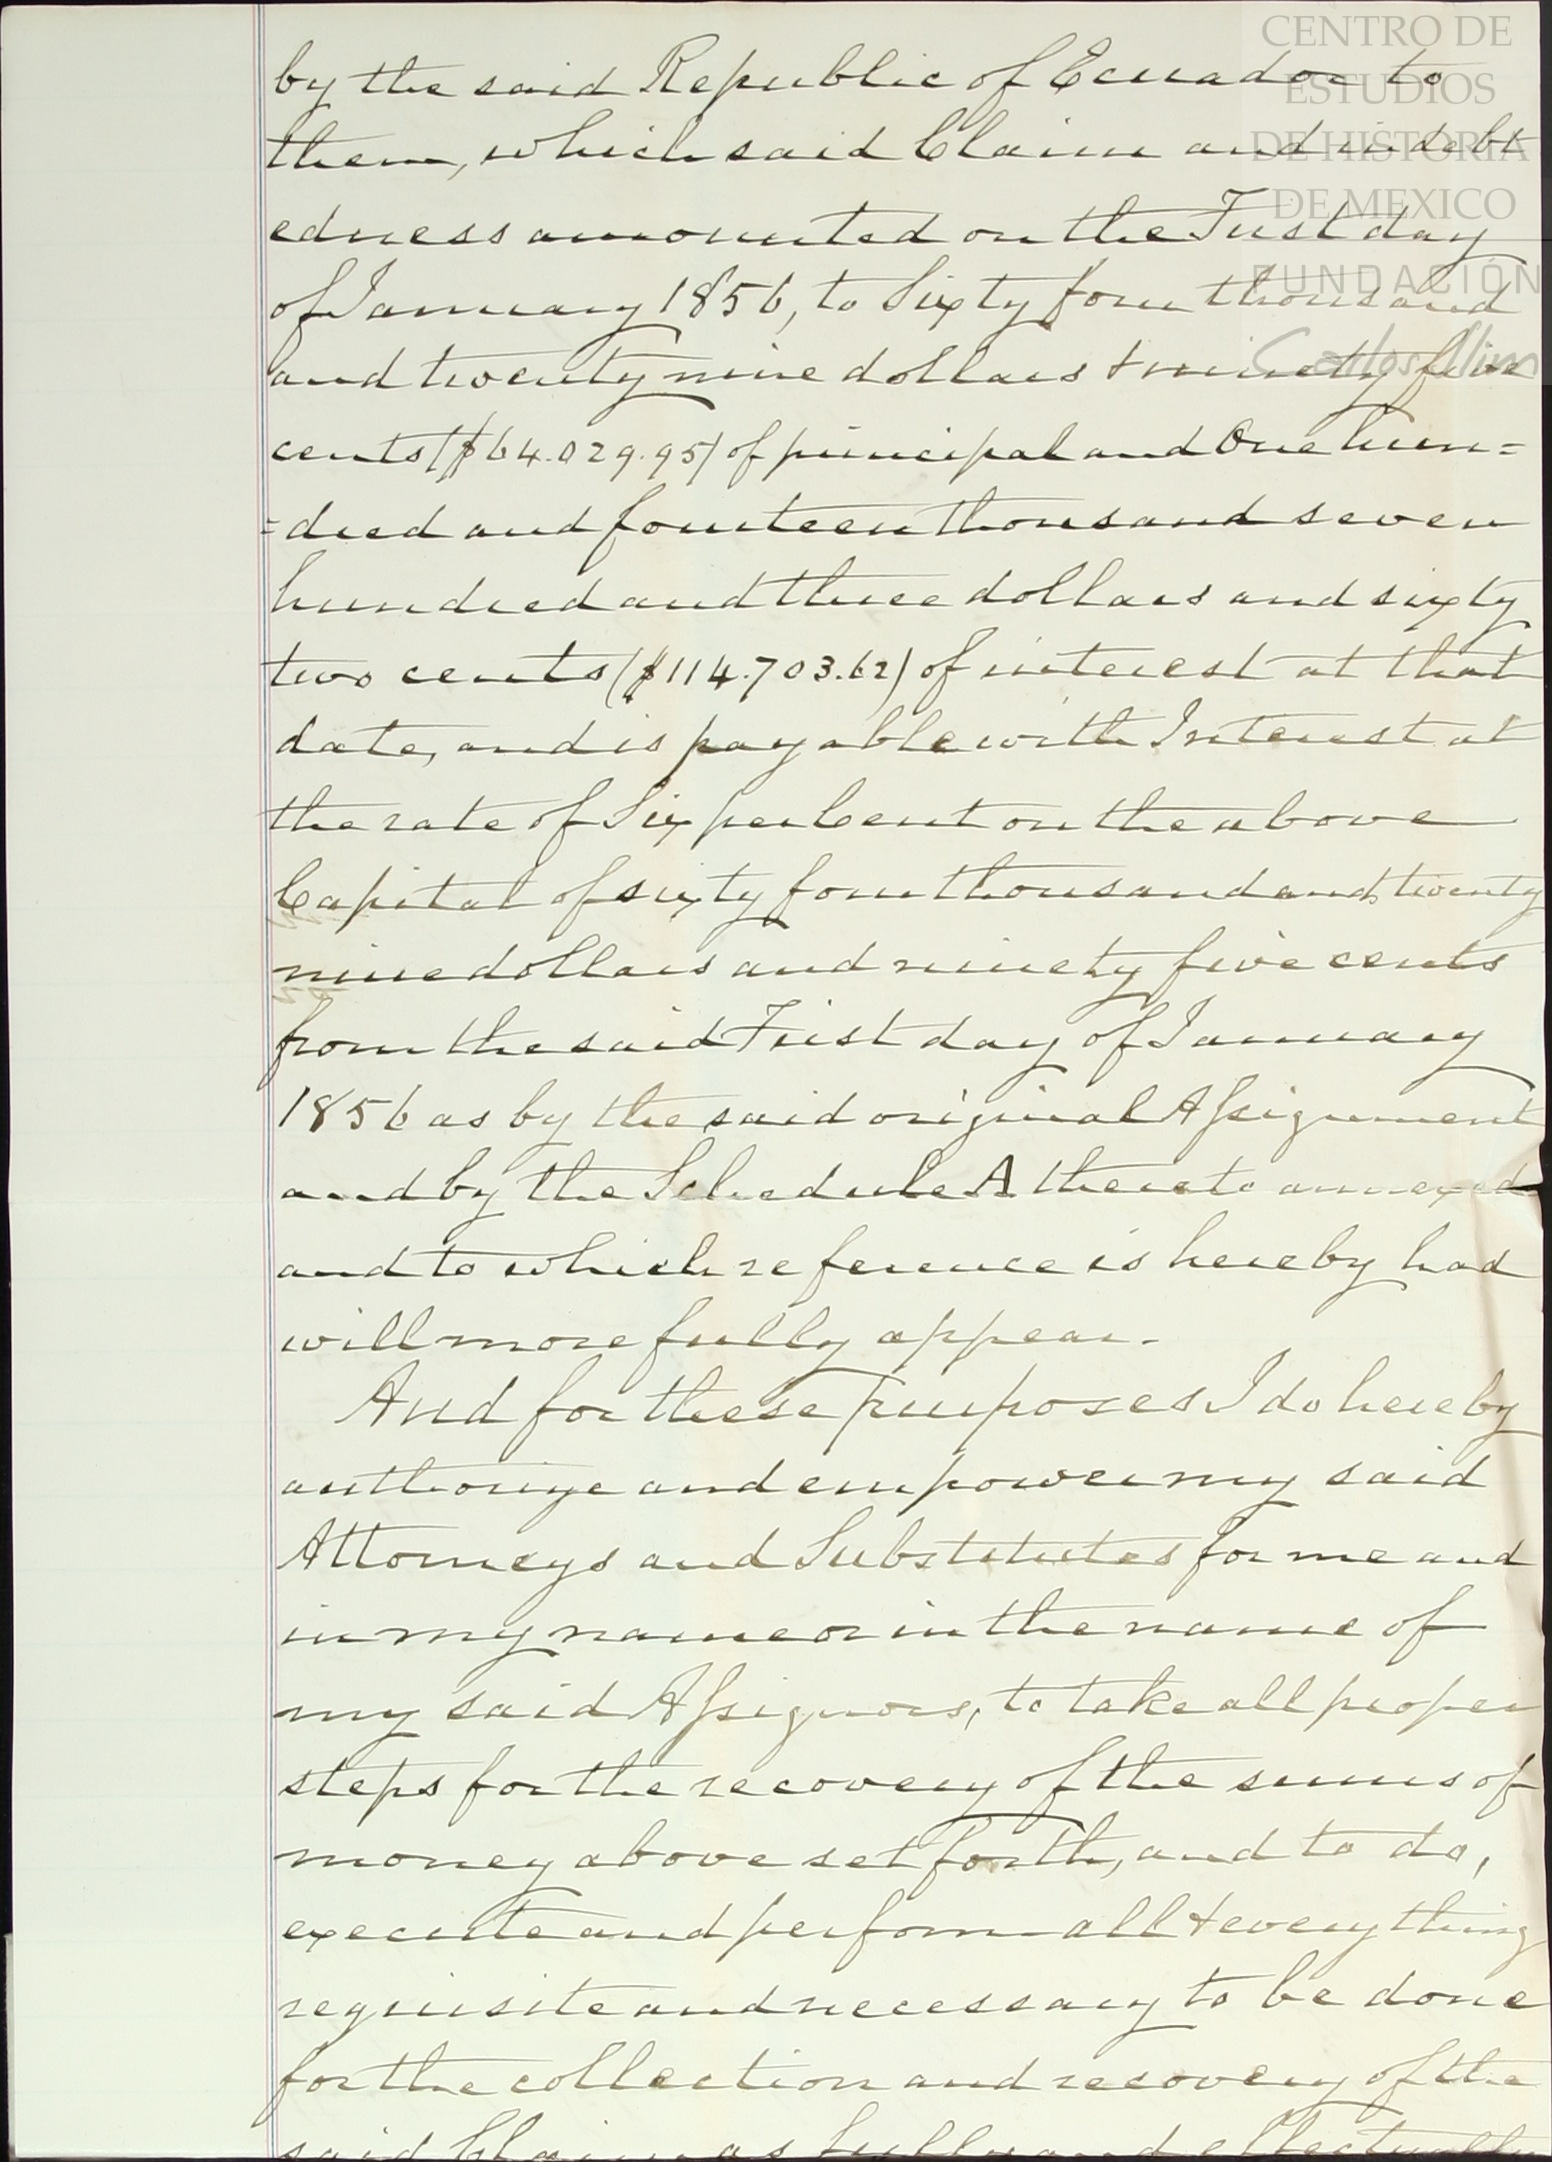 by the said Republic of Ecuador to
them, which said Claim and indebt
edness amounted on the First day
of January 1856, to Sixty four thousand
and twenty nine dollars & ninety five
cents ($64.029.95) of principal and One hun=
=dred and fourteen thousand seven
hundred and three dollars and sixty
two cents ($114.703.62) of interest at that
date, and is payable with Interest at
the rate of Six per Cent on the above
Capital of sixty four thousand and twenty
nine dollars and ninety five cents
from the said First day of January
1856 as by the said original Assignment
and by the Schedule A thereto annexed
and to which reference is hereby had
will more fully appear.
And for these purposes I do hereby
authorize and empower my said
Attorneys and Substitutes for me and
in my name or in the name of
my said Assignors, to take all proper
steps for the recovery of the sums of
money above set forth, and to do,
execute and perform all & everything
requisite and necessary to be done
for the collection and recovery of the
said Claim as fully and effectually
CENTRO DE
ESTUDIOS
DE HISTORIA
DE MEXICO
FUNDACIÓN
Carlos Slim